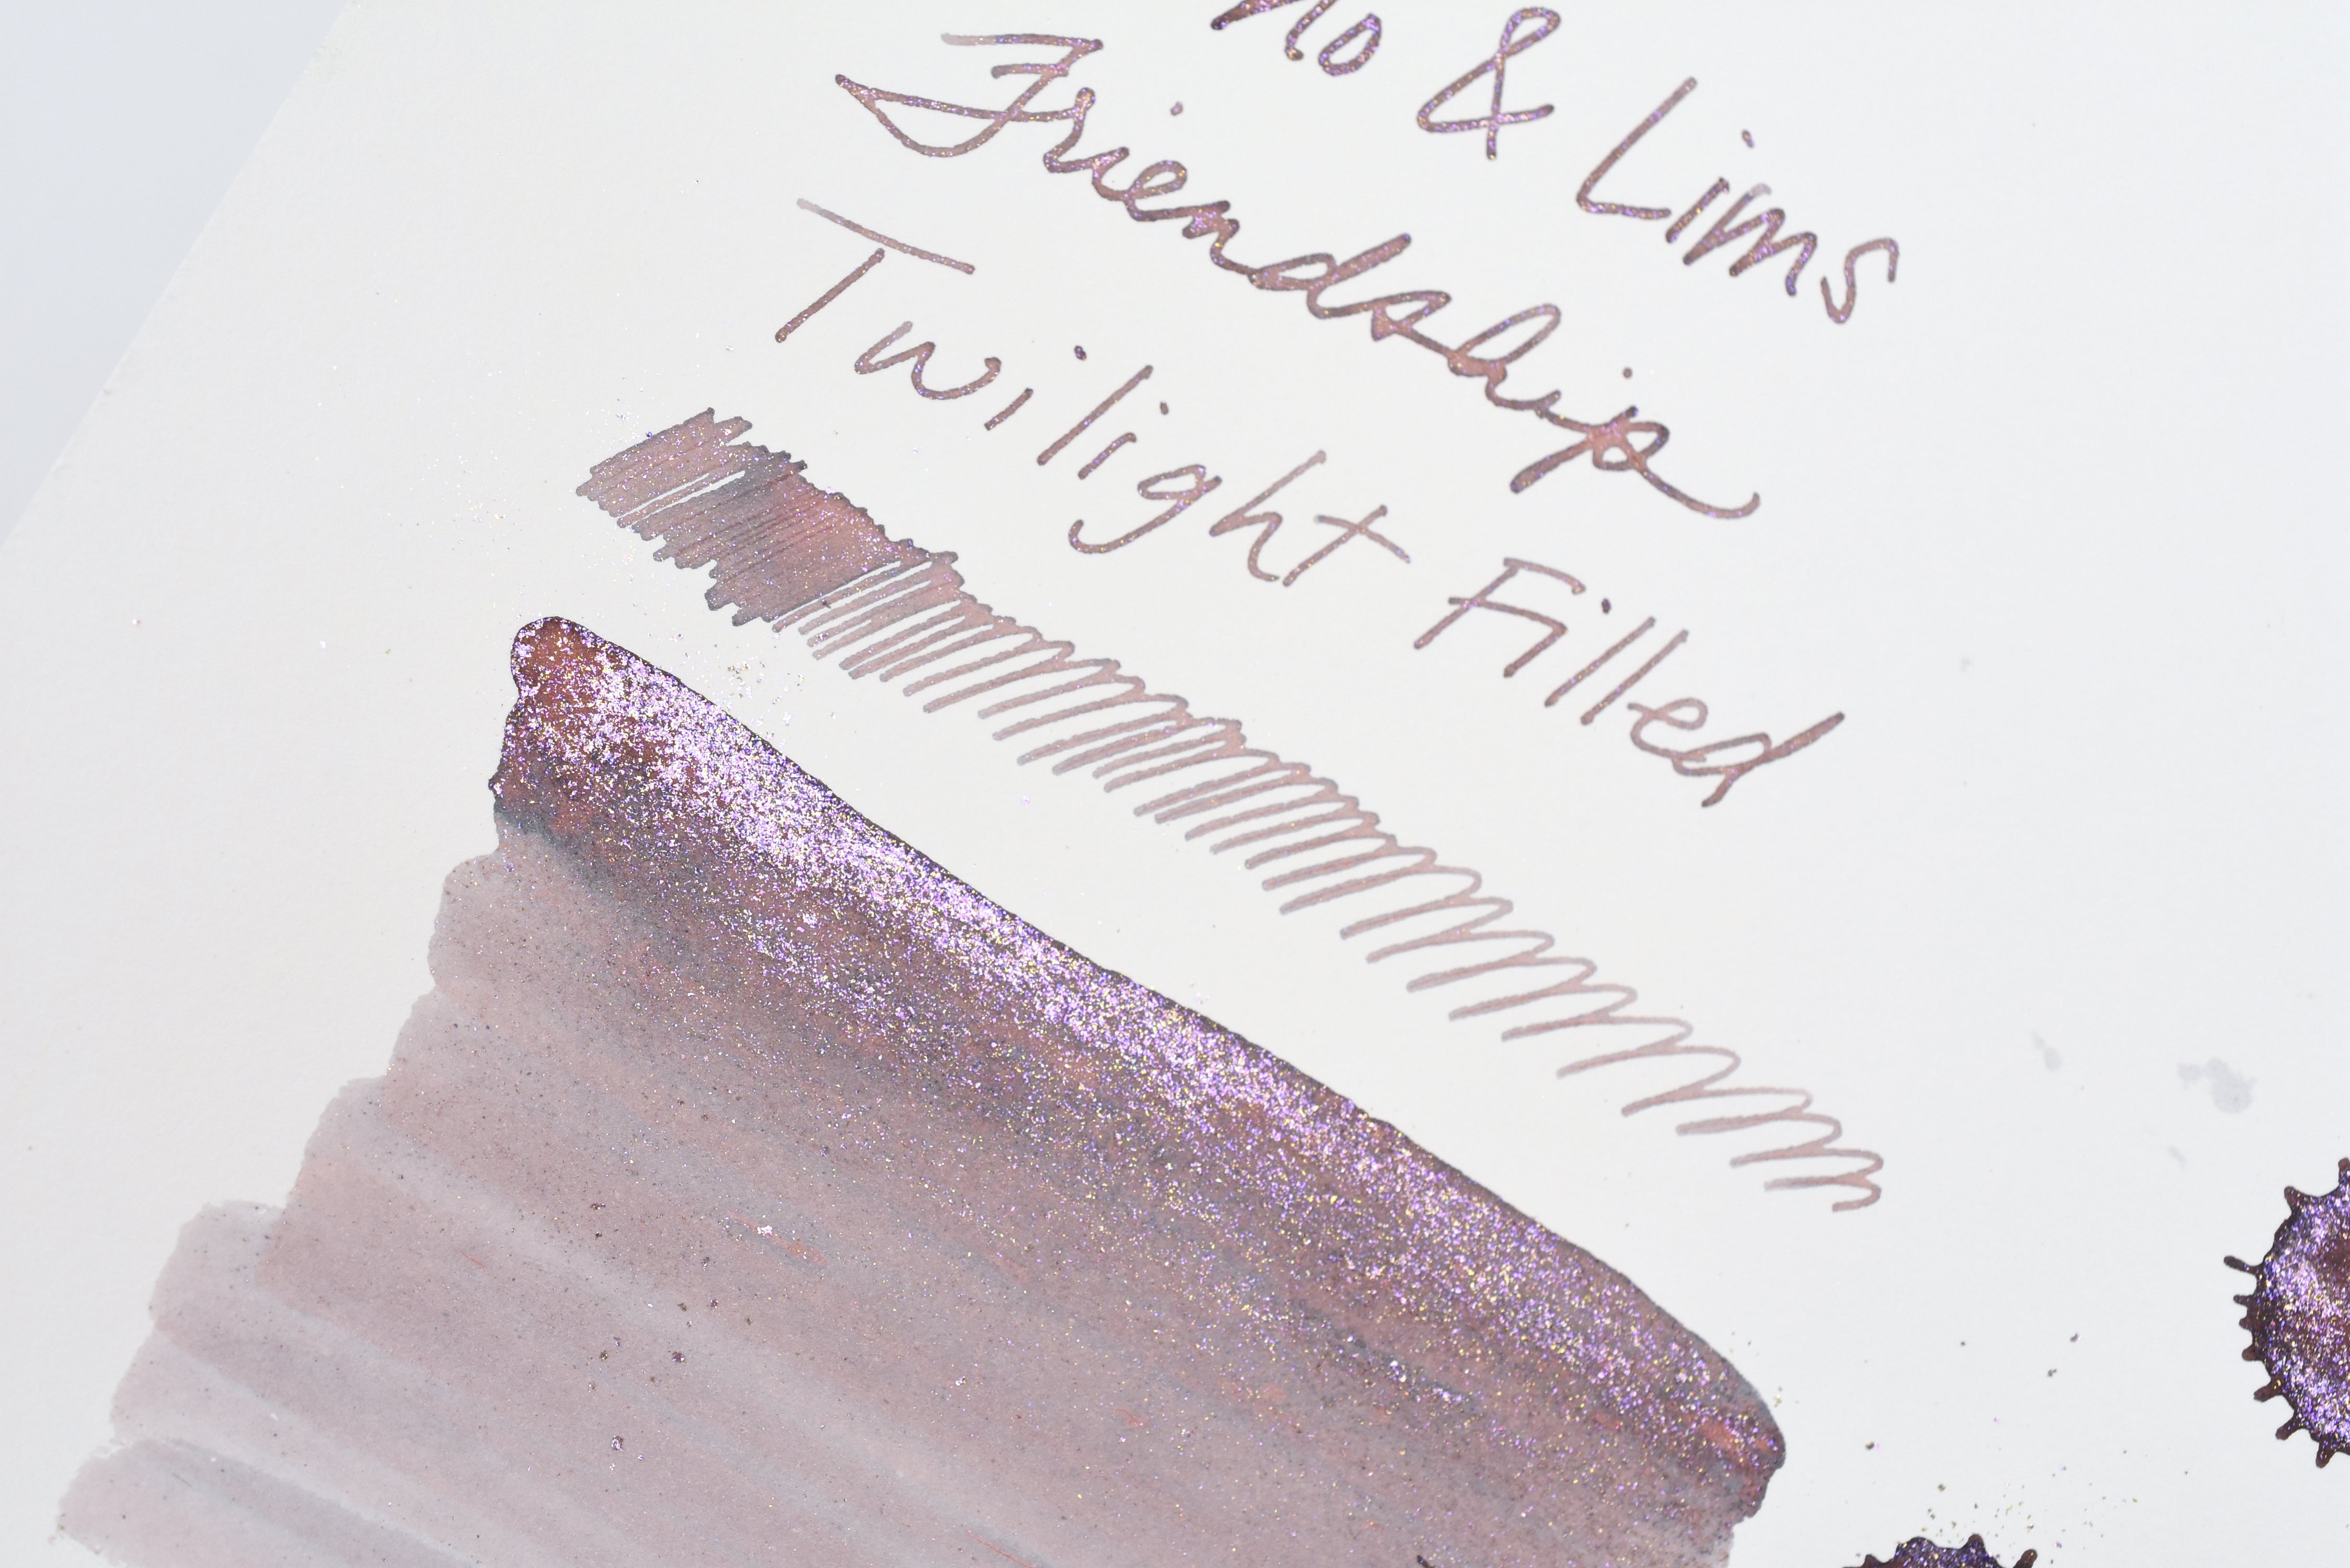 no & Lims
Friendship
Twilight Filled